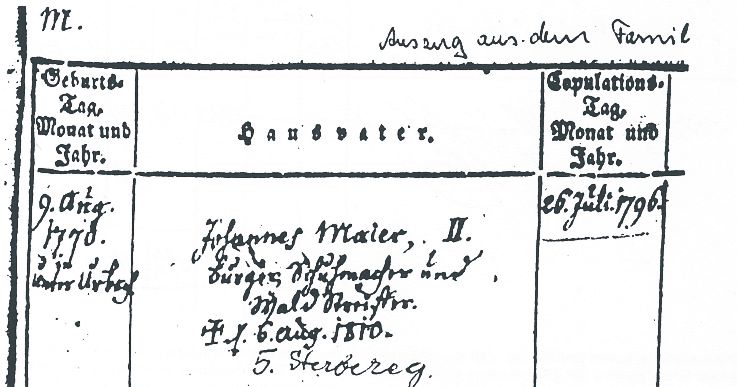 M.
Auszug aus dem Famil
Geburts-
Tag,
Monat und
Jahr.
Hausvater.
Copulations-
Tag,
Monat und
Jahr.
9. Aug.
1770.
Urbach
26. Juli. 1796.
Johannes Maier, II.
burger, Schuhmacher und
Wald
6. Aug. 1810.
S. Sterbereg.